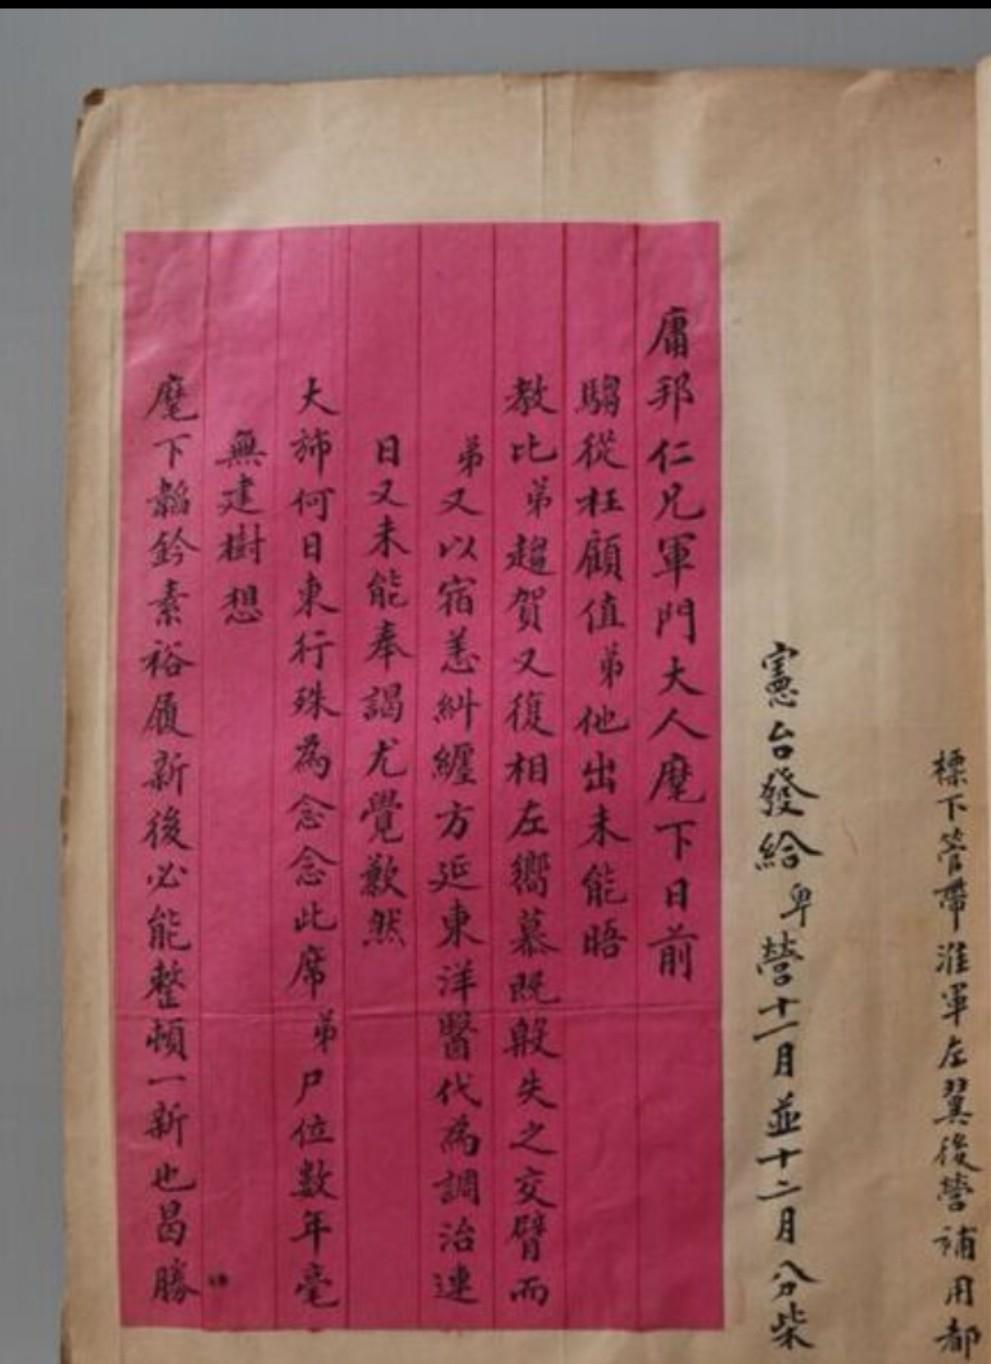 標下管帶淮軍左翼後營補用都
憲台發給卑營十一月並十二月分柴
庸邦仁兄軍門大人麾下日前
騶從枉顧值弟他出未能晤
教比弟趨賀又復相左嚮慕既殷失之交臂而
弟又以宿恙糾纏方延東洋醫代為調治連
日又未能奉謁尤覺歉然
大旆何日東行殊為念念此席弟尸位數年毫
無建樹想
麾下韜鈐素裕履新後必能整頓一新也曷勝